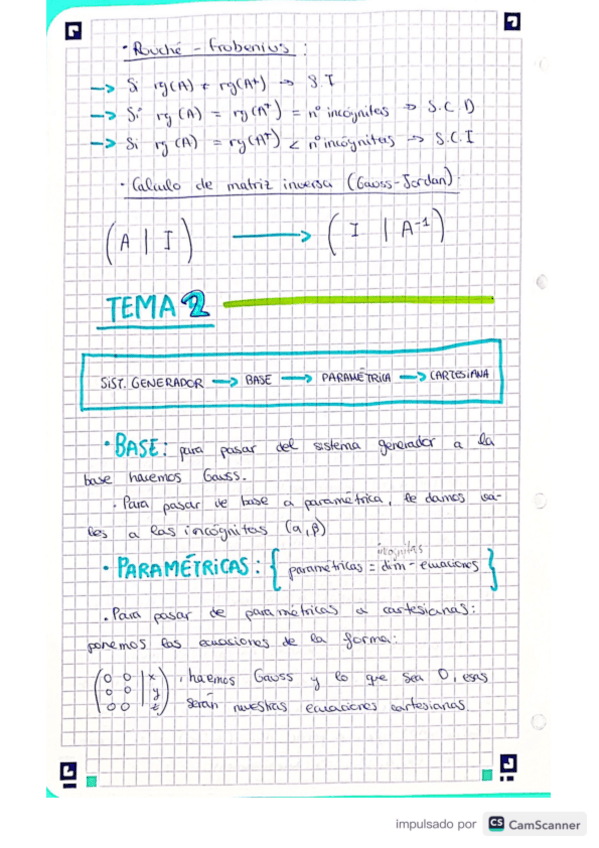 · Rouché - Frobenius :
→ Si rg(A) ≠ rg(A*) → S.I
→ Si rg(A) = rg(A*) = nº incógnitas → S.C.D
→ Si rg(A) = rg(A*) < nº incógnitas → S.C.I
· Calculo de matriz inversa (Gauss-Jordan).
(A | I) → (I | A⁻¹)
TEMA 2
SIST. GENERADOR → BASE → PARAMÉTRICA → CARTESIANA
· BASE: para pasar del sistema generador a la
base hacemos Gauss.
· Para pasar de base a paramétrica, le damos va-
les a las incógnitas (α, β)
incógnitas
· PARAMÉTRICAS: { paramétricas = dim - ecuaciones }
· Para pasar de paramétricas a cartesianas:
ponemos las ecuaciones de la forma:
(0 0 | x
0 0 | y
0 0 | z) , hacemos Gauss y lo que sea 0, esas
serán nuestras ecuaciones cartesianas.
impulsado por CS CamScanner